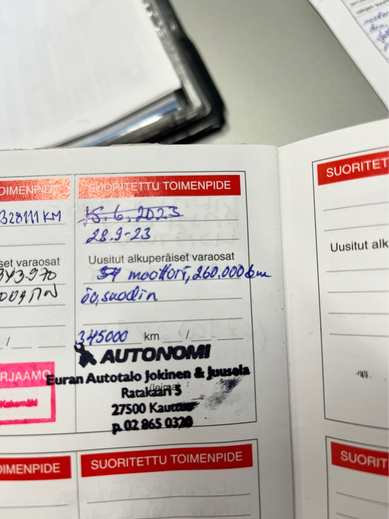 TOIMENPIDE
328111 KM
set varaosat
RJAAMO
SUORITETTU TOIMENPIDE
15.6.2023
28.9-23
Uusitut alkuperäiset varaosat
moottori, 260.000km
öö,suodin
345000 km / /
AUTONOMI
Euran Autotalo Jokinen & Juusela
Ratakaari 5
27500 Kauttua
p.02 865 0320
OIMENPIDE
SUORITETTU TOIMENPIDE
SUORITET
Uusitut alk
SUORIT